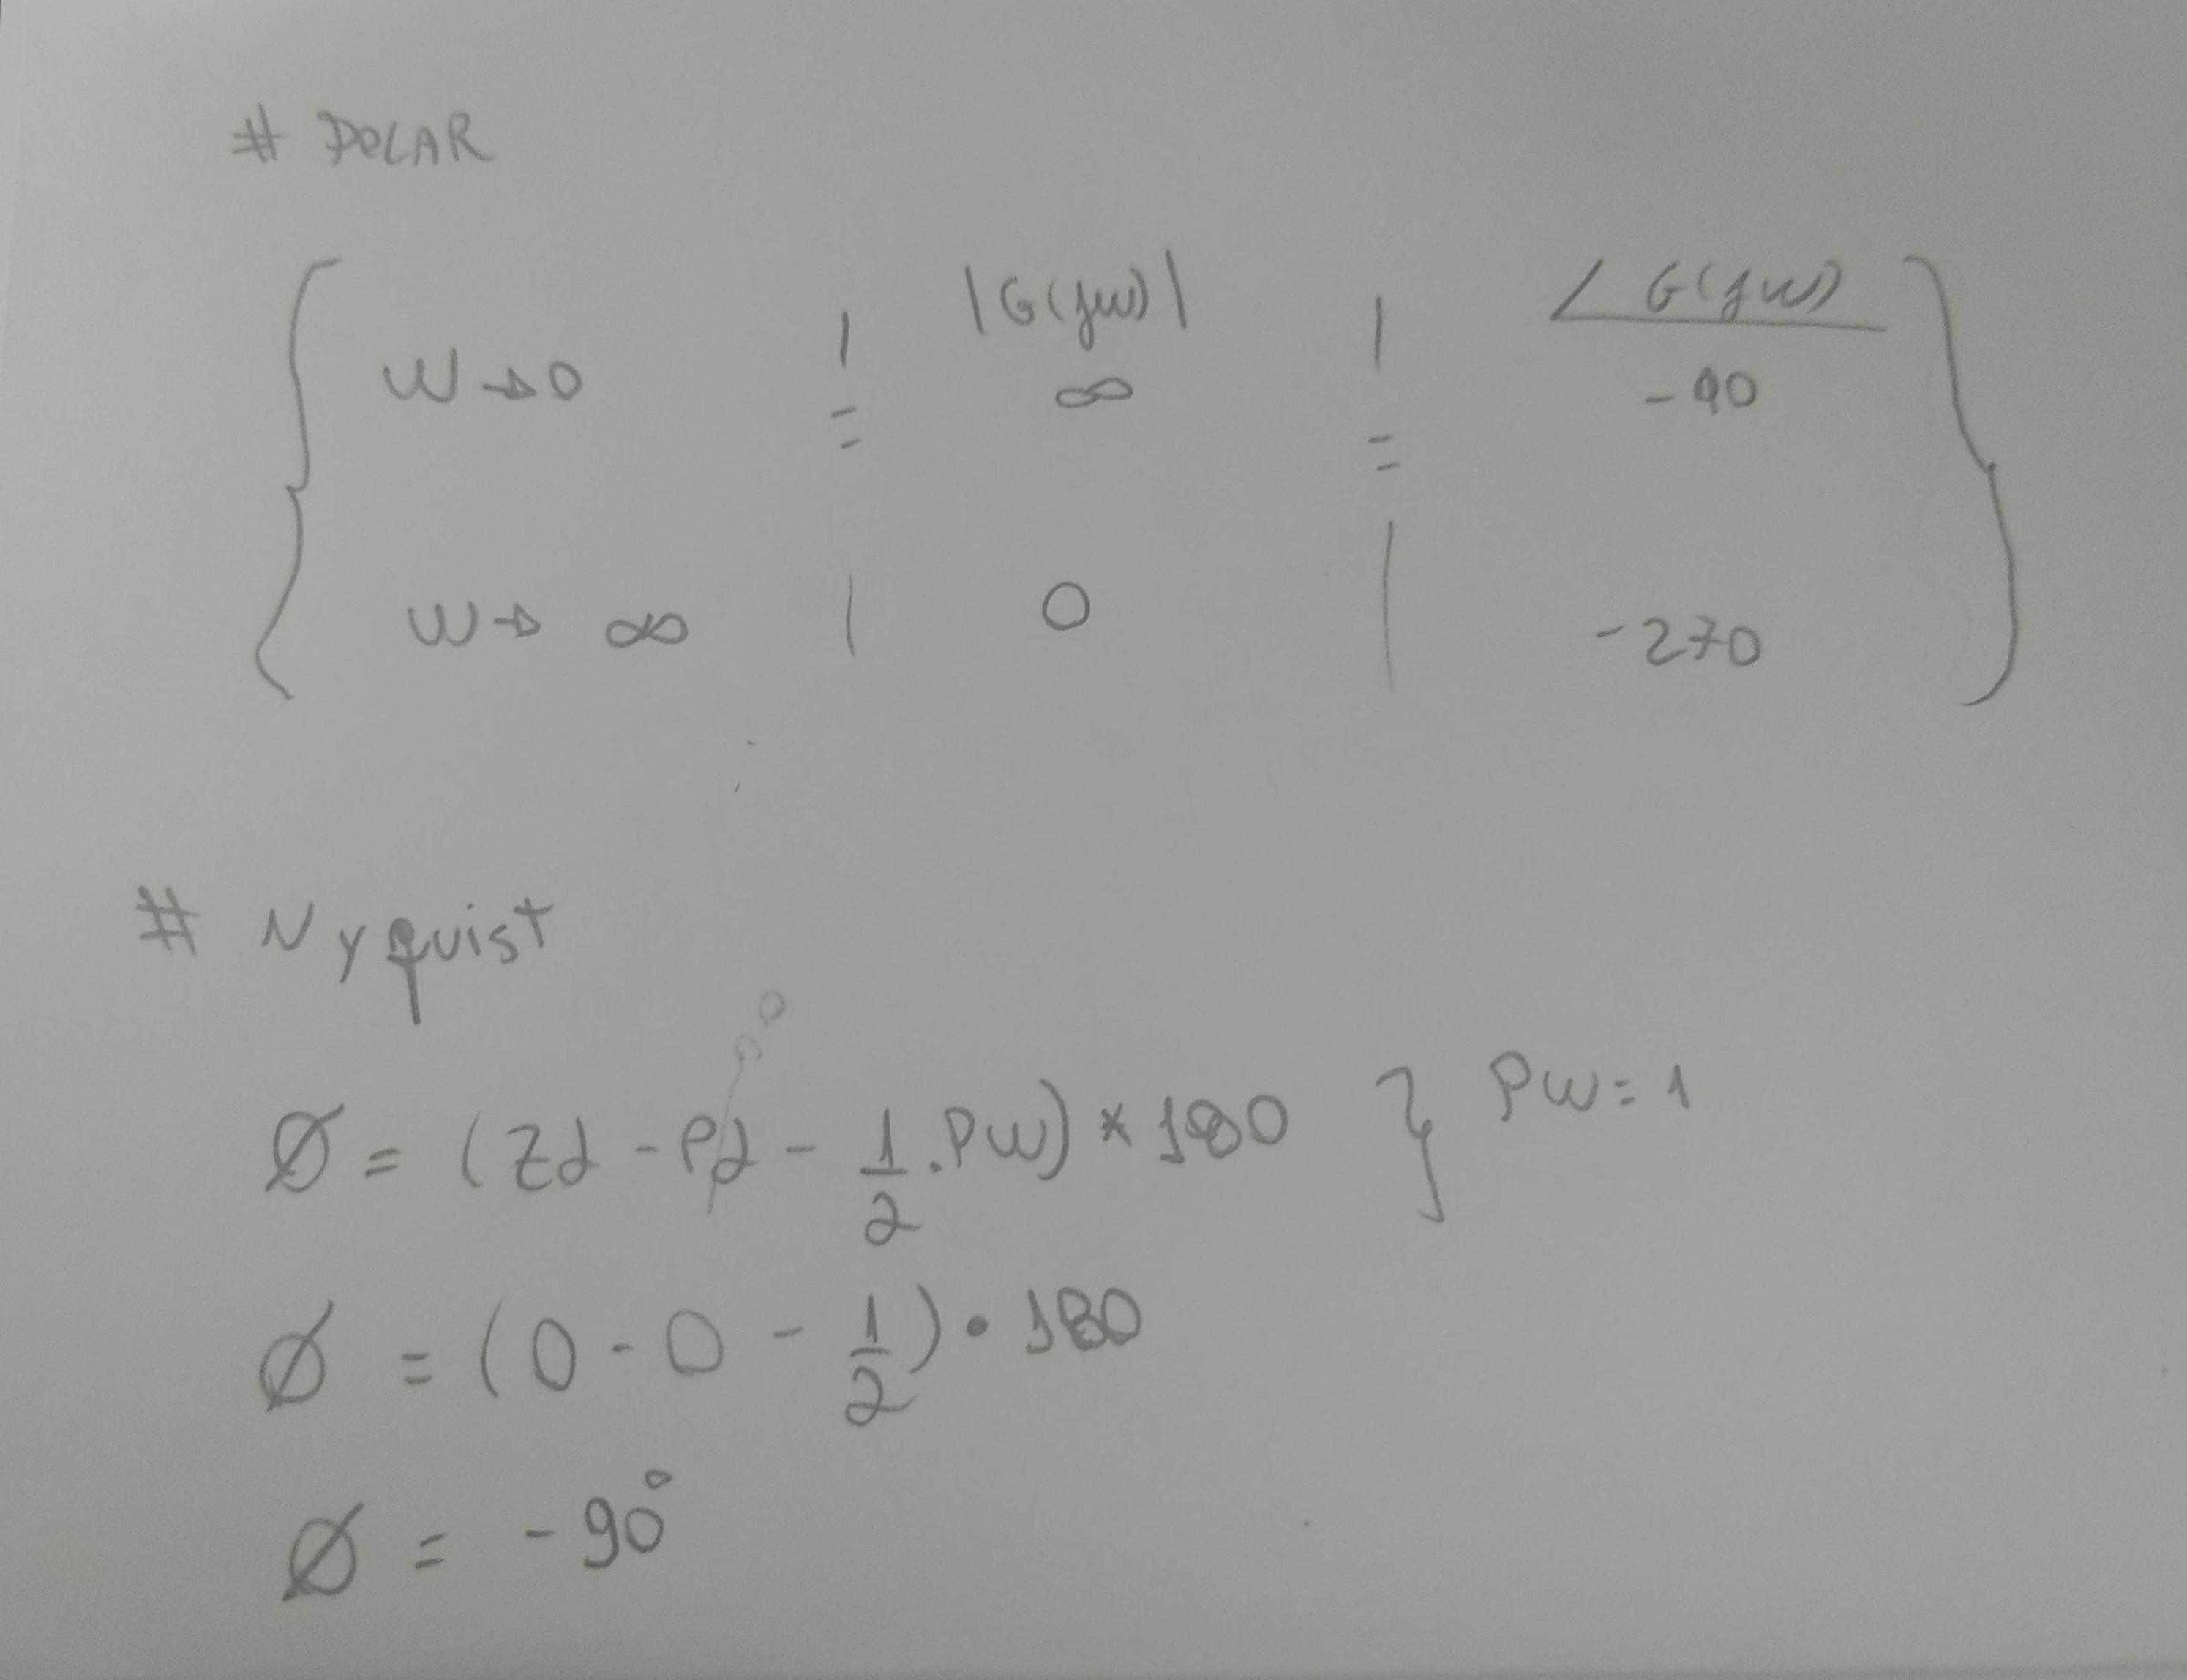 # POLAR
|G(jw)| ∠G(jw)
w→0 | ∞ | -90
= =
w→ ∞ | 0 | -270
# Nyquist
0
Ø = (Zd - Pd - 1/2 . PW) * 180 } PW = 1
Ø = (0 - 0 - 1/2) • 180
Ø = - 90°